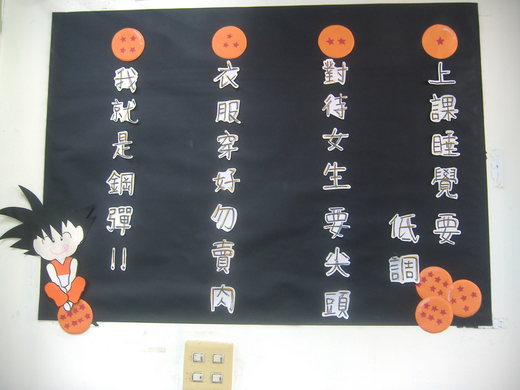 上課睡覺要低調
對待女生要尖頭
衣服穿好勿賣肉
我就是鋼彈!!